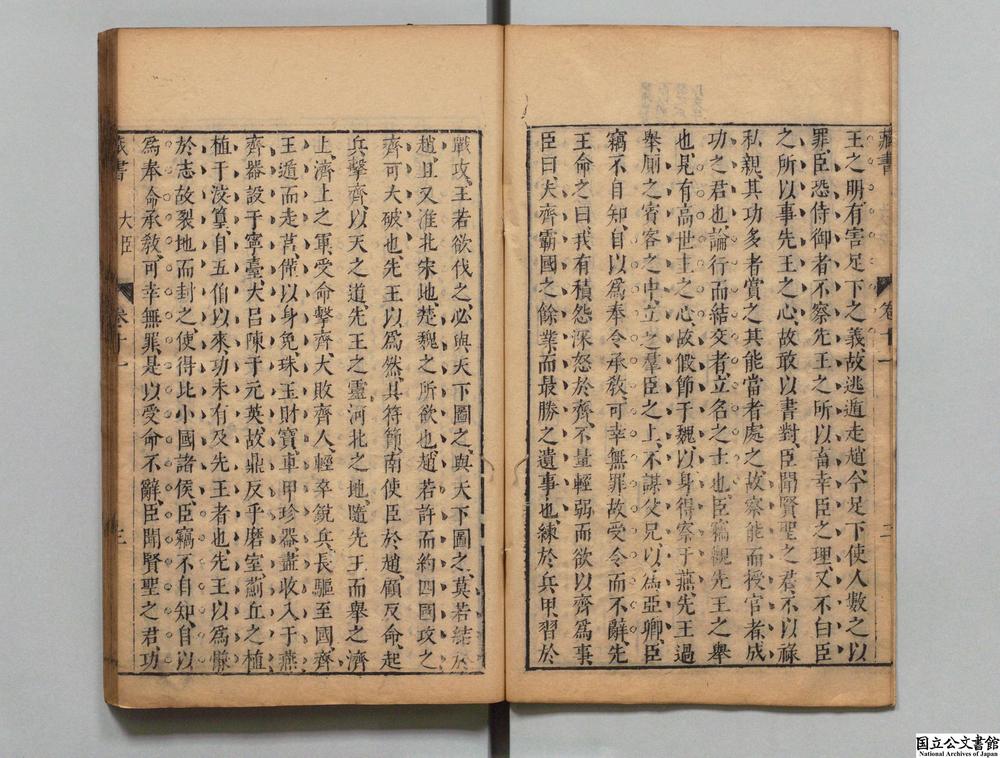 藏書 卷十一 二
王之明有害足下之義故逃遁走趙今足下使人數之以
罪臣恐侍御者不察先王之所以畜幸臣之理又不白臣
之所以事先王之心故敢以書對臣聞賢聖之君不以祿
私親其功多者賞之其能當者處之故察能而授官者成
功之君也論行而結交者立名之士也臣竊觀先王之舉
也見有高世主之心故假節于魏以身得察于燕先王過
舉厠之賓客之中立之羣臣之上不謀父兄以爲亞卿臣
竊不自知自以爲奉令承敎可幸無罪故受令而不辭先
王命之曰我有積怨深怒於齊不量輕弱而欲以齊爲事
臣曰夫齊霸國之餘業而最勝之遺事也練於兵甲習於
戰攻王若欲伐之必與天下圖之與天下圖之莫若結於
趙且又淮北宋地楚魏之所欲也趙若許而約四國攻之
齊可大破也先王以爲然具符節南使臣於趙顧反命起
兵擊齊以天之道先王之靈河北之地隨先王而舉之濟
上濟上之軍受命擊齊大敗齊人輕卒銳兵長驅至國齊
王遁而走莒僅以身免珠玉財寶車甲珍器盡收入于燕
齊器設于寧臺大呂陳于元英故鼎反乎磨室薊丘之植
植于汶篁自五伯以來功未有及先王者也先王以爲慊
於志故裂地而封之使得比小國諸侯臣竊不自知自以
爲奉命承敎可幸無罪是以受命不辭臣聞賢聖之君功
藏書 大臣 卷十一 三
国立公文書館
National Archives of Japan